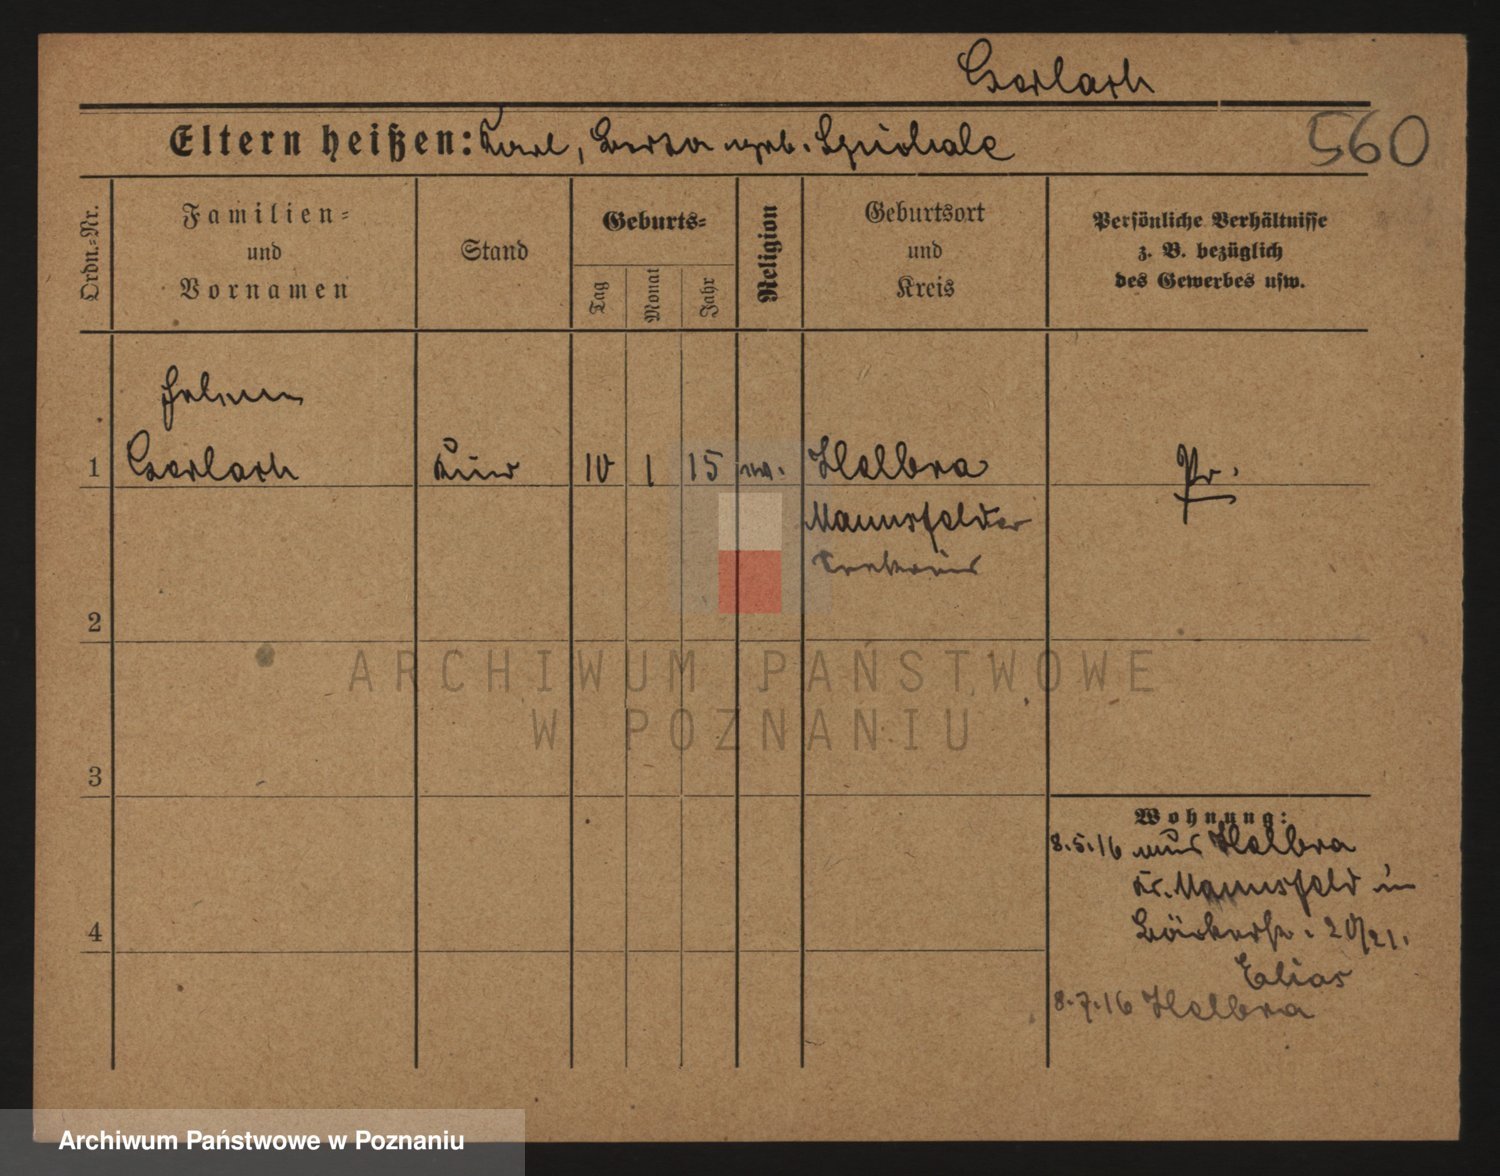 Gerlach
Eltern heißen: Karl, Berta geb.
560
Ordn.=Nr.
Familien=
und
Vornamen
Stand
Geburts=
Tag
Monat
Jahr
Religion
Geburtsort
und
Kreis
Persönliche Verhältnisse
z. B. bezüglich
des Gewerbes usw.
1
Gerlach
Kind
10
1
15
Helbra
Pr.
Mannsfelder
2
3
4
Wohnung:
8.5.16 aus Helbra
Kr. Mannsfeld in
Bäckerstr. 20/21.
Elias
8.7.16 Helbra
ARCHIWUM PAŃSTWOWE
W POZNANIU
Archiwum Państwowe w Poznaniu